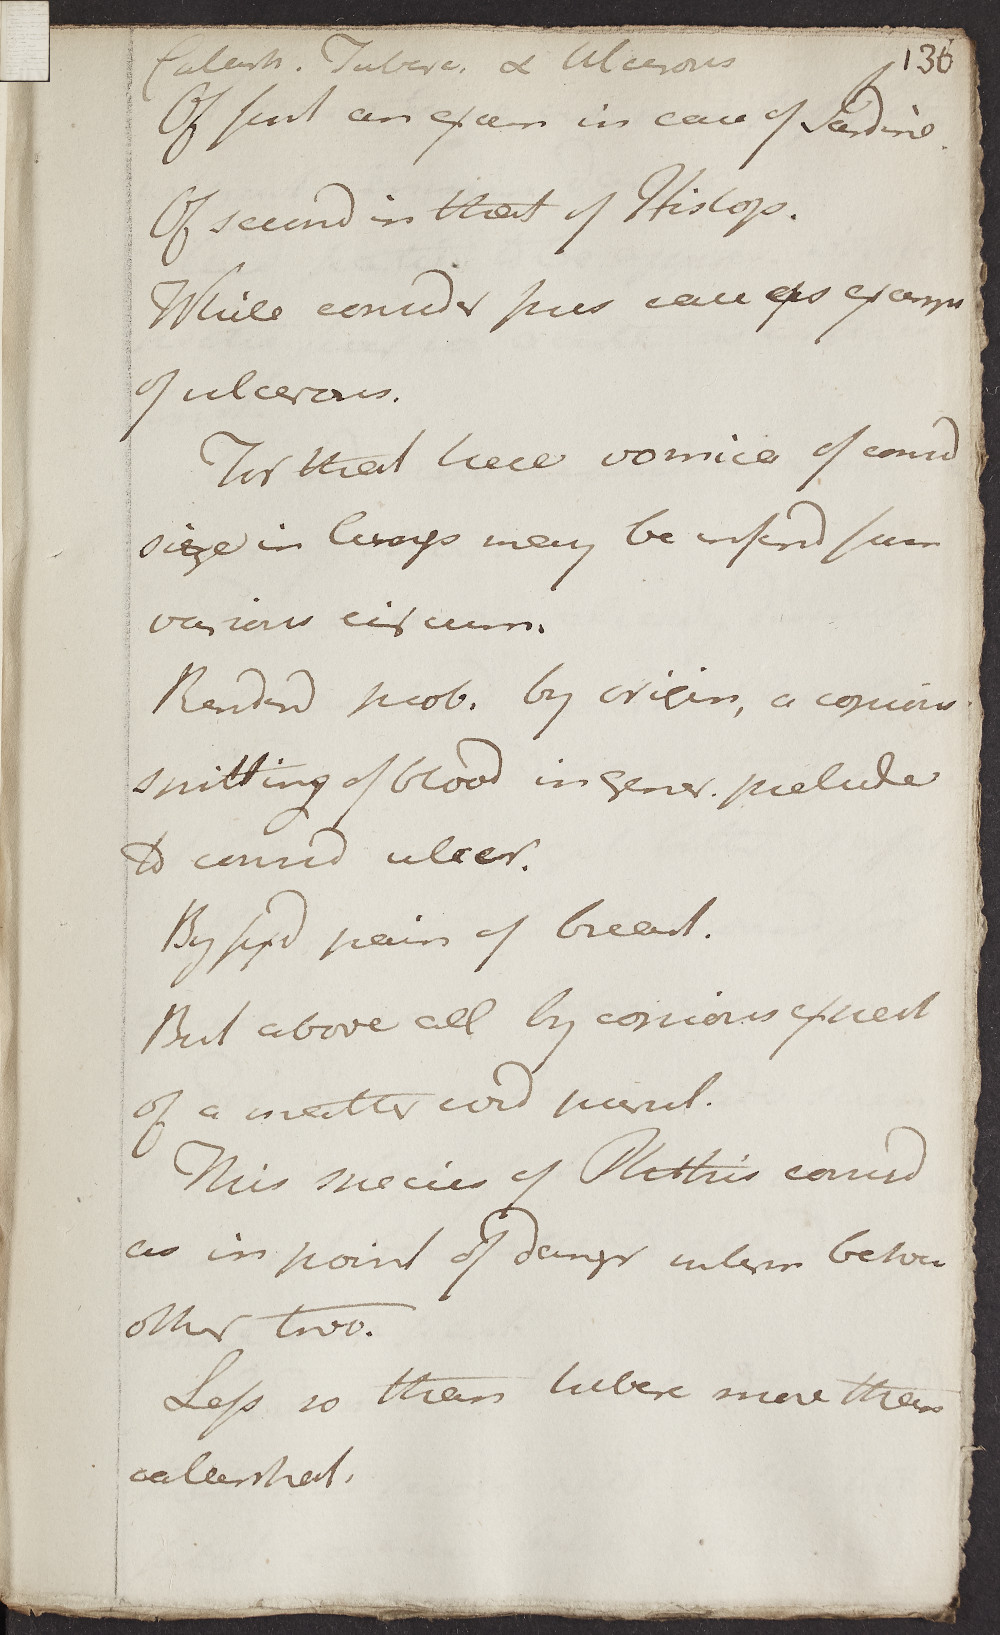 Catarrh. Tuberc. & Ulcerous 136
Of first an exam in case of Jardine.
Of second in that of Hislop.
While consider pres case as examp
of ulcerous.
For that here vomica of consid
size in lungs may be inferd from
various circum.
Renderd prob. by origin, a copious
spitting of blood in gener. prelude
to consid ulcer.
By fixd pain of breast.
But above all by copious expect
of a matter evid purul.
This species of Phthis consid
as in point of danger interm betwn
other two.
Less so than tuberc more than
catarrhal.